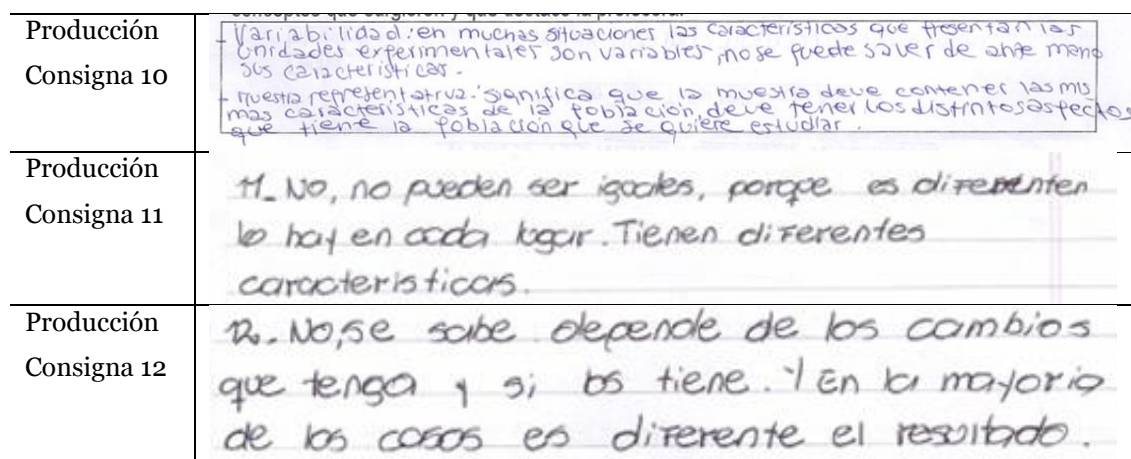 conceptos que surgieron y que destacó la profesora.
Producción
Consigna 10
- Variabilidad: en muchas situaciones las características que presentan las
unidades experimentales son variables, no se puede saver de ante mano
sus características.
- muestra representatrva: significa que la muestra deve contener las mis
mas características de la población, deve tener los distintos aspectos
que tiene la población que se quiere estudiar.
Producción
Consigna 11
11_ No, no pueden ser iguales, porque es diferenten
lo hay en cada lugar. Tienen diferentes
caracteristicas.
Producción
Consigna 12
12. No, se sabe depende de los cambios
que tenga y si los tiene. Y En la mayoria
de los casos es diferente el resultado.